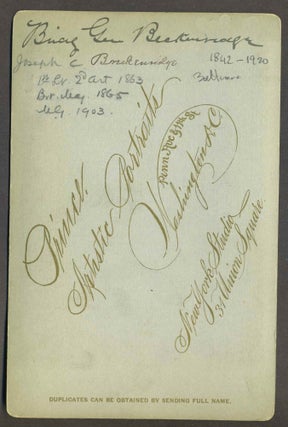 Brig Gen Breckenridge
Joseph C Breckenridge 1842-1920
1st Lt 2d Art 1863
Bvt. Maj. 1865
M.G. 1903.
Prince.
Artistic Portraits
Penn. Ave & 11th St
Washington D.C.
New York Studio
31 Union Square.
DUPLICATES CAN BE OBTAINED BY SENDING FULL NAME.